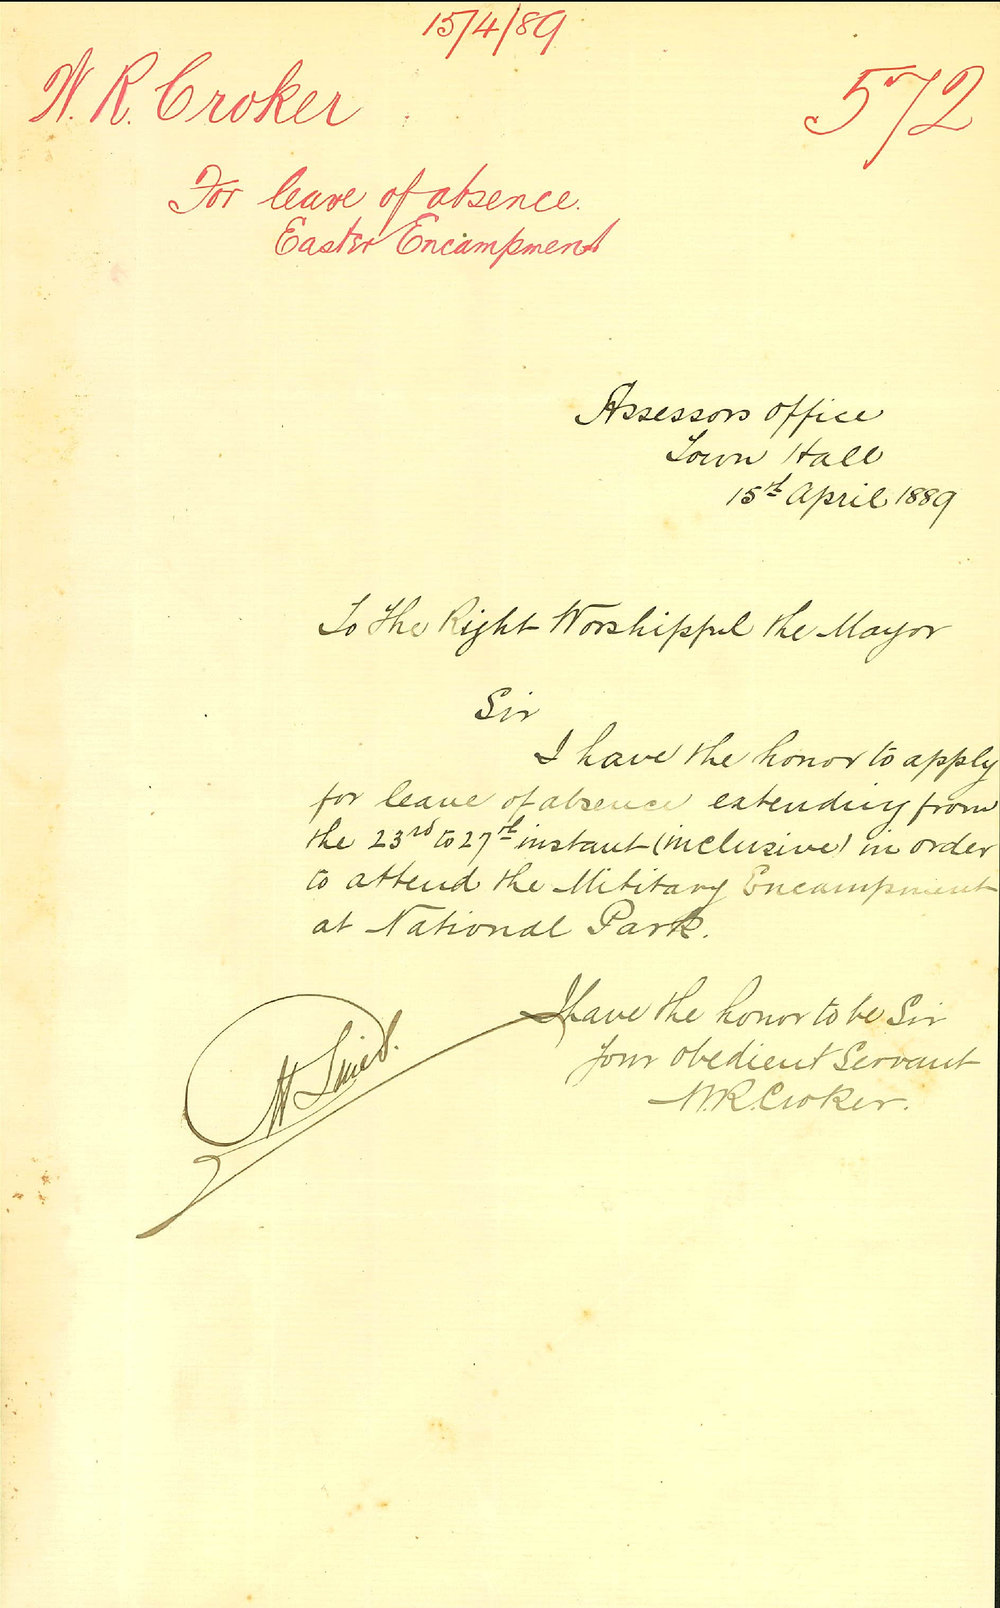 15/4/89
W. R. Croker
572
For leave of absence.
Easter Encampment
Assessors office
Town Hall
15th April 1889
To The Right Worshippful the Mayor
Sir
I have the honor to apply
for leave of absence extending from
the 23rd to 27th instant (inclusive) in order
to attend the Military Encampment
at National Park.
I have the honor to be Sir
Your obedient Servant
W.R. Croker.